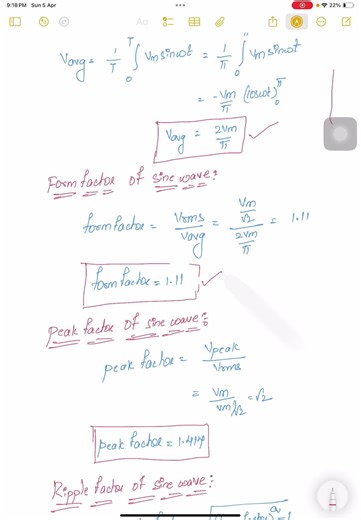 9:18 PM Sun 5 Apr
22%
Vavg = 1/T ∫₀ᵀ Vm sinωt = 1/π ∫₀^π Vm sinωt
= -Vm/π (cosωt)₀^π
Vavg = 2Vm/π
Form factor of sine wave:
form factor = Vrms/Vavg = (Vm/√2)/(2Vm/π) = 1.11
form factor = 1.11
Peak factor of sine wave:
peak factor = Vpeak/Vrms
= Vm/(Vm/√2) = √2
peak factor = 1.414
Ripple factor of sine wave: